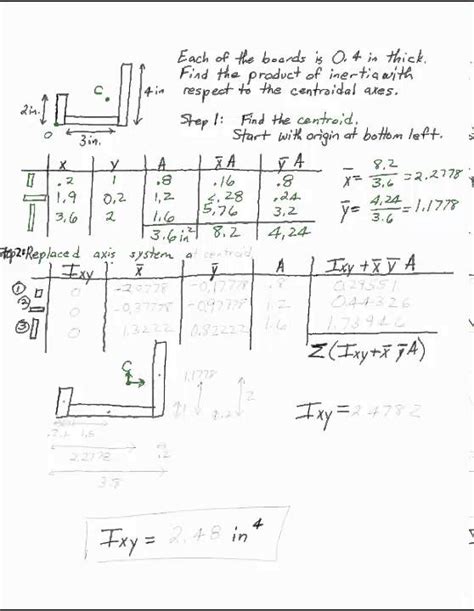 Each of the boards is 0.4 in thick.
Find the product of inertia with
respect to the centroidal axes.
C
4 in
2 in.
O
3 in.
Step 1: Find the centroid.
Start with origin at bottom left.
x y A x̄A ȳA
.2 1 .8 .16 .8
1.9 0.2 1.2 2.28 .24
3.6 2 1.6 5.76 3.2
3.6 in² 8.2 4.24
x̄ = 8.2 / 3.6 = 2.2778
ȳ = 4.24 / 3.6 = 1.1778
Step 2: Replaced axis system at centroid
Ixy x̄ ȳ A Ixy + x̄ ȳ A
① 0 -2.0778 -0.17778 .8 0.29551
② 0 -0.37778 -0.97778 1.2 0.44326
③ 0 1.3222 0.82222 1.6 1.73946
Σ(Ixy + x̄ ȳ A)
C
1.1778
1
2
.2
Ixy = 2.4782
2.2778
3.8
Ixy = 2.48 in⁴